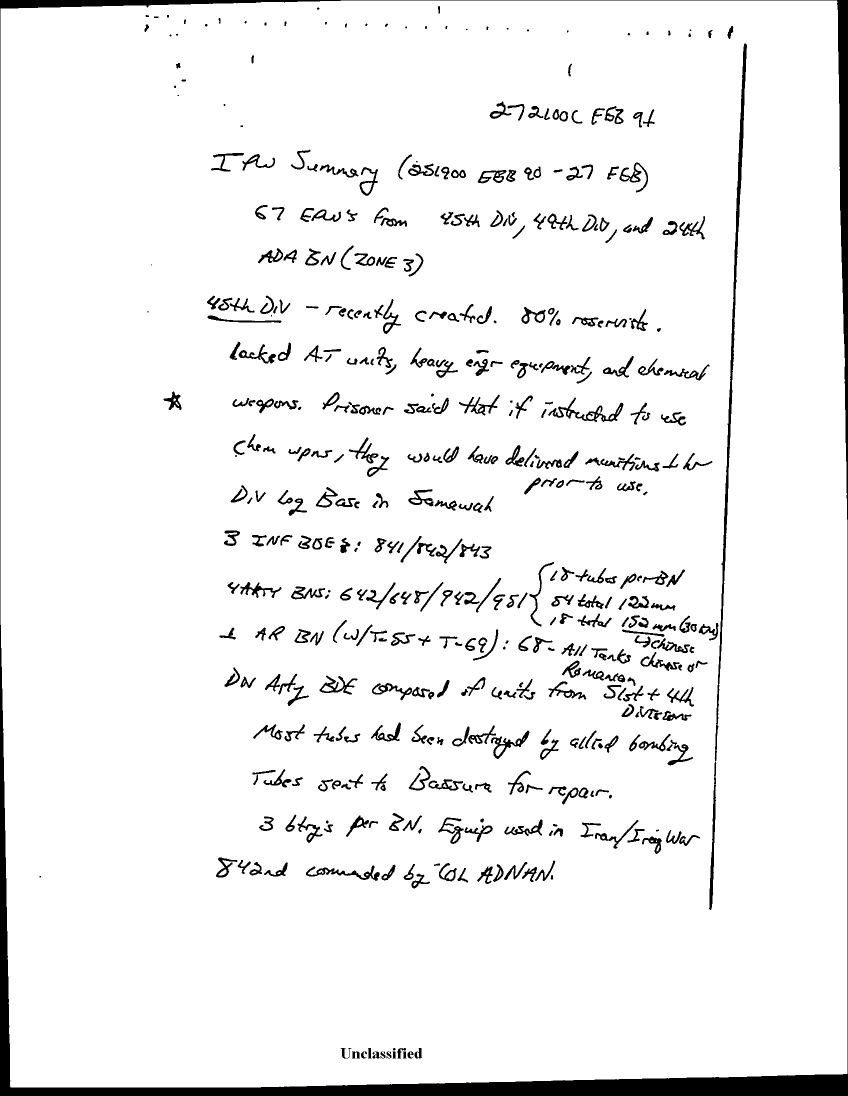 272100C FEB 91
IPW Summary (251900 FEB 90 - 27 FEB)
67 EPW's from 45th DIV, 49th DIV, and 24th
ADA BN (ZONE 3)
45th DIV - recently created. 80% reservists.
lacked AT units, heavy engr equipment, and chemical
☆ weapons. Prisoner said that if instructed to use
chem wpns, they would have delivered munitions 1 hr
prior to use.
DIV Log Base in Samawah
3 INF BDE's: 841/842/843
4 ARTY BNS: 642/648/942/951 { 18 tubes per BN
54 total 122mm
18 total 152mm (30 KM)
↳ Chinese
1 AR BN (w/T-55 + T-69): 68 - All Tanks Chinese or
Romanian
DIV Arty BDE composed of units from 51st + 4th
DIVISIONS
Most tubes had been destroyed by allied bombing
Tubes sent to Bassura for repair.
3 btry's per BN. Equip used in Iran/Iraq War
842nd commanded by COL ADNAN.
Unclassified